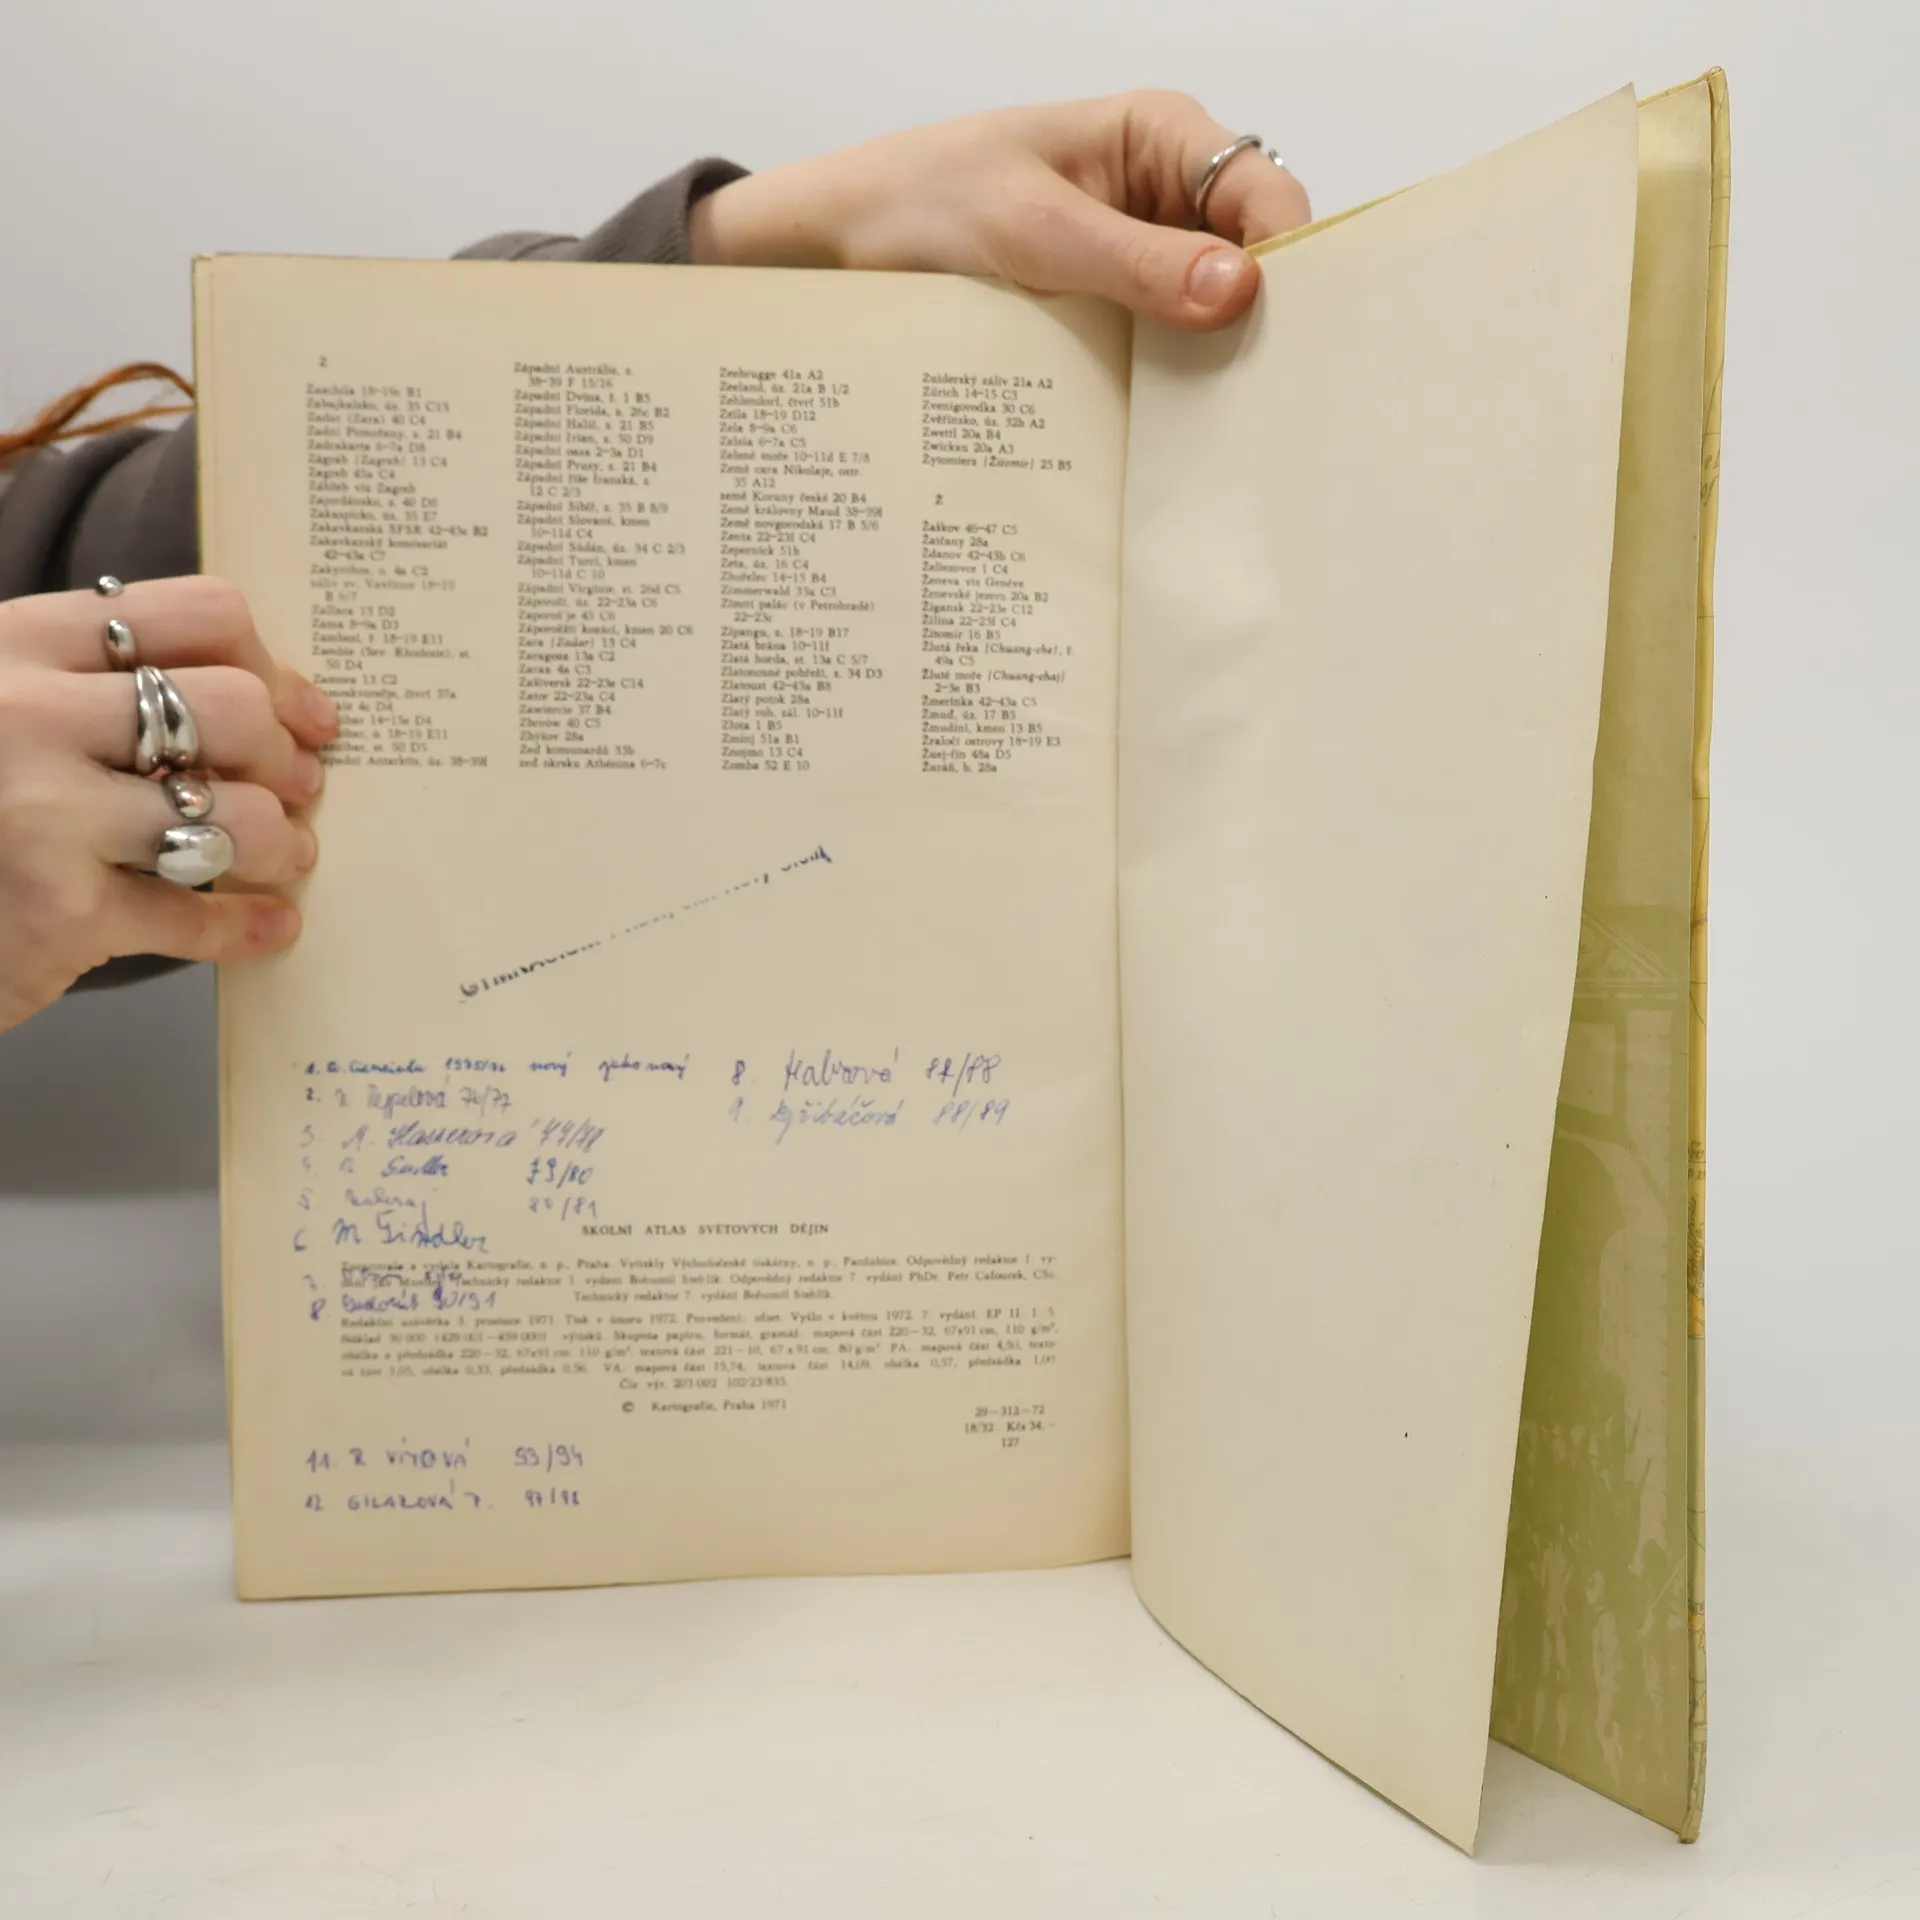 Z
Zaachila 18-19c B1
Zabajkalsko, úz. 35 C13
Zadar (Zara) 40 C4
Zadní Pomořany, z. 21 B4
Zadrakarta 6-7a D8
Zágráb [Zagreb] 13 C4
Zagreb 45a C4
Záhřeb viz Zagreb
Zajordánsko, z. 40 D6
Zakaspicko, úz. 35 E7
Zakavkazská SFSR 42-43c B2
Zakavkazský komisariát
42-43a C7
Zakynthos, o. 4a C2
záliv sv. Vavřince 18-19
B 6/7
Zallaca 13 D2
Zama 8-9a D3
Zambezi, ř. 18-19 E11
Zambie (Sev. Rhodesie), st.
50 D4
Zamora 13 C2
čtvrť 37a
4c D4
14-15a D4
o. 18-19 E11
st. 50 D5
Západní Antarktis, úz. 38-39f
Západní Austrálie, z.
38-39 F 15/16
Západní Dvina, ř. 1 B5
Západní Florida, z. 26c B2
Západní Halič, z. 21 B5
Západní Irian, z. 50 D9
Západní oasa 2-3a D1
Západní Prusy, z. 21 B4
Západní říše franská, z.
12 C 2/3
Západní Sibiř, z. 35 B 8/9
Západní Slované, kmen
10-11d C4
Západní Súdán, úz. 34 C 2/3
Západní Turci, kmen
10-11d C 10
Západní Virginie, st. 26d C5
Záporoží, úz. 22-23a C6
Zaporož'je 45 C6
Záporožští kozáci, kmen 20 C6
Zara [Zadar] 13 C4
Zaragoza 13a C2
Zarax 4a C3
Zašiversk 22-23e C14
Zator 22-23a C4
Zawiercie 37 B4
Zborów 40 C5
Zbýšov 28a
Zeď komunardů 33b
zeď okrsku Athénina 6-7c
Zeebrugge 41a A2
Zeeland, úz. 21a B 1/2
Zehlendorf, čtvrť 51b
Zeila 18-19 D12
Zela 8-9a C6
Zeleia 6-7a C5
Zelené moře 10-11d E 7/8
Země cara Nikolaje, ostr.
35 A12
země Koruny české 20 B4
Země královny Maud 38-39f
Země novgorodská 17 B 5/6
Zenta 22-23f C4
Zepernick 51b
Zeta, úz. 16 C4
Zhořelec 14-15 B4
Zimmerwald 33a C3
Zimní palác (v Petrohradě)
22-23c
Zipangu, z. 18-19 B17
Zlatá brána 10-11f
Zlatá horda, st. 13a C 5/7
Zlatonosné pobřeží, z. 34 D3
Zlatoust 42-43a B8
Zlatý potok 28a
Zlatý roh, zál. 10-11f
Zlota 1 B5
Zminj 51a B1
Znojmo 13 C4
Zomba 52 E 10
Zuiderský záliv 21a A2
Zürich 14-15 C3
Zvenigorodka 30 C6
Zvěřinsko, úz. 32b A2
Zwettl 20a B4
Zwickau 20a A3
Żytomierz [Žitomir] 25 B5
Ž
Žaškov 46-47 C5
Žatčany 28a
Ždanov 42-43b C6
Želiezovce 1 C4
Ženeva viz Genève
Ženevské jezero 20a B2
Žigansk 22-23e C12
Žilina 22-23f C4
Žitomir 16 B5
Žlutá řeka [Chuang-che], ř.
49a C5
Žluté moře [Chuang-chaj]
2-3e B3
Žmerinka 42-43a C5
Žmuď, úz. 17 B5
Žmudíni, kmen 13 B5
Žraločí ostrovy 18-19 E3
Žuej-ťin 48a D5
Žuráň, h. 28a
1. 1975/76 nový jako nový
2. 76/77
3. A. 77/78
4. 79/80
5. 80/81
6 M
7.
8. 90/91
8. 87/88
9. 88/89
ŠKOLNÍ ATLAS SVĚTOVÝCH DĚJIN
Zpracovala a vydala Kartografie, n. p., Praha. Vytiskly Východočeské tiskárny, n. p., Pardubice. Odpovědný redaktor 1. vy-
Technický redaktor 1. vydání Bohumil Stehlík. Odpovědný redaktor 7. vydání PhDr. Petr Cafourek, CSc.
Technický redaktor 7. vydání Bohumil Stehlík.
Redakční uzávěrka 3. prosince 1971. Tisk v únoru 1972. Provedení: ofset. Vyšlo v květnu 1972. 7. vydání. EP II. 1. 5.
Náklad 30 000 (429 001—459 000) výtisků. Skupina papíru, formát, gramáž: mapová část 220—32, 67x91 cm, 110 g/m²,
obálka a předsádka 220—32, 67x91 cm 110 g/m², textová část 221—10, 67 x 91 cm, 80 g/m² PA: mapová část 4,50, texto-
vá část 3,05, obálka 0,33, předsádka 0,36. VA: mapová část 15,74, textová část 14,09, obálka 0,57, předsádka 1,00
Čís. výr. 203 002 102/23/835.
© Kartografie, Praha 1971
29—312—72
18/32 Kčs 34,—
127
11. R VÍTOVÁ 93/94
12 97/98